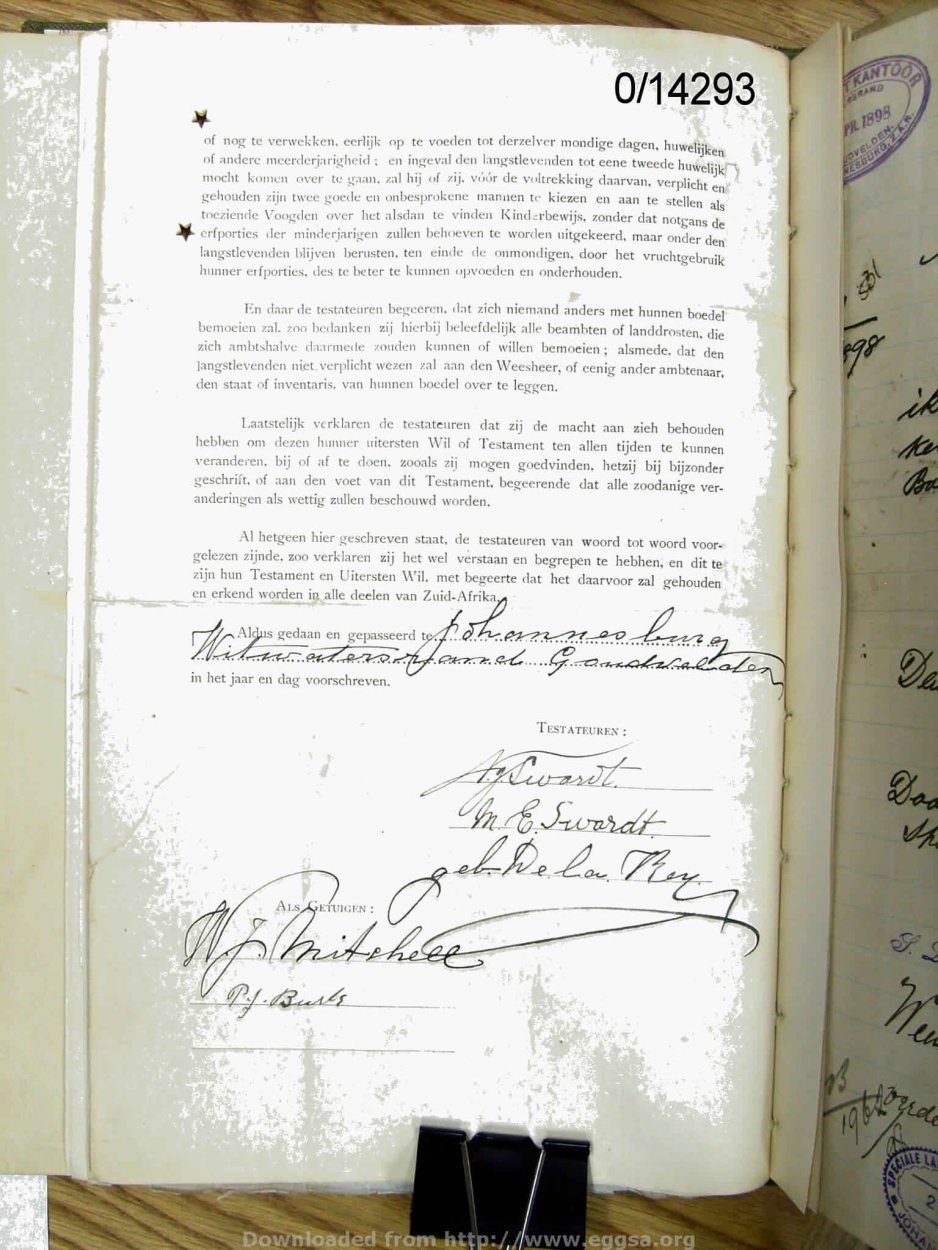 0/14293
of nog te verwekken, eerlijk op te voeden tot derzelver mondige dagen, huwelijken
of andere meerderjarigheid; en ingeval den langstlevenden tot eene tweede huwelijk
mocht komen over te gaan, zal hij of zij, vóór de voltrekking daarvan, verplicht en
gehouden zijn twee goede en onbesprokene mannen te kiezen en aan te stellen als
toeziende Voogden over het alsdan te vinden Kinderbewijs, zonder dat notgans de
erfporties der minderjarigen zullen behoeven te worden uitgekeerd, maar onder den
langstlevenden blijven berusten, ten einde de onmondigen, door het vruchtgebruik
hunner erfporties, des te beter te kunnen opvoeden en onderhouden.
En daar de testateuren begeeren, dat zich niemand anders met hunnen boedel
bemoeien zal, zoo bedanken zij hierbij beleefdelijk alle beambten of landdrosten, die
zich ambtshalve daarmede zouden kunnen of willen bemoeien; alsmede, dat den
langstlevenden niet verplicht wezen zal aan den Weesheer, of eenig ander ambtenaar,
den staat of inventaris, van hunnen boedel over te leggen.
Laatstelijk verklaren de testateuren dat zij de macht aan zich behouden
hebben om dezen hunner uitersten Wil of Testament ten allen tijden te kunnen
veranderen, bij of af te doen, zooals zij mogen goedvinden, hetzij bij bijzonder
geschrift, of aan den voet van dit Testament, begeerende dat alle zoodanige ver-
anderingen als wettig zullen beschouwd worden.
Al hetgeen hier geschreven staat, de testateuren van woord tot woord voor-
gelezen zijnde, zoo verklaren zij het wel verstaan en begrepen te hebhen, en dit te
zijn hun Testament en Uitersten Wil, met begeerte dat het daarvoor zal gehouden
en erkend worden in alle deelen van Zuid-Afrika.
Aldus gedaan en gepasseerd te Johannesburg
Witwatersrand Goudvelden
in het jaar en dag voorschreven.
TESTATEUREN:
Swardt.
M. E. Swardt
geb. De la Rey
ALS GETUIGEN:
W. J. Mitchell
P. J.
KANTOOR
1898
898
ik
Downloaded from http://www.eggsa.org